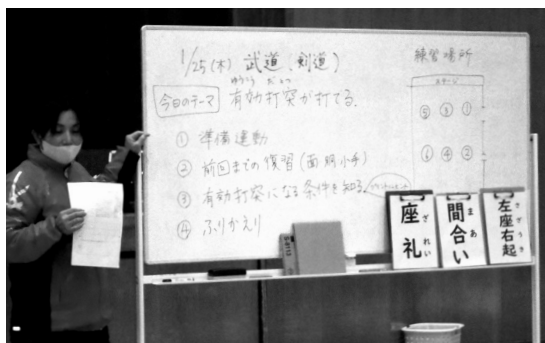 1/25(木) 武道(剣道)
今日のテーマ
ゆうこう だとつ
有効打突が打てる。
① 準備運動
② 前回までの復習(面胴小手)
③ 有効打突になる条件を知る
④ ふりかえり
練習場所
ステージ
⑤ ③ ①
⑥ ④ ②
座礼
ざれい
間合い
まあ
左座右起
さざうき